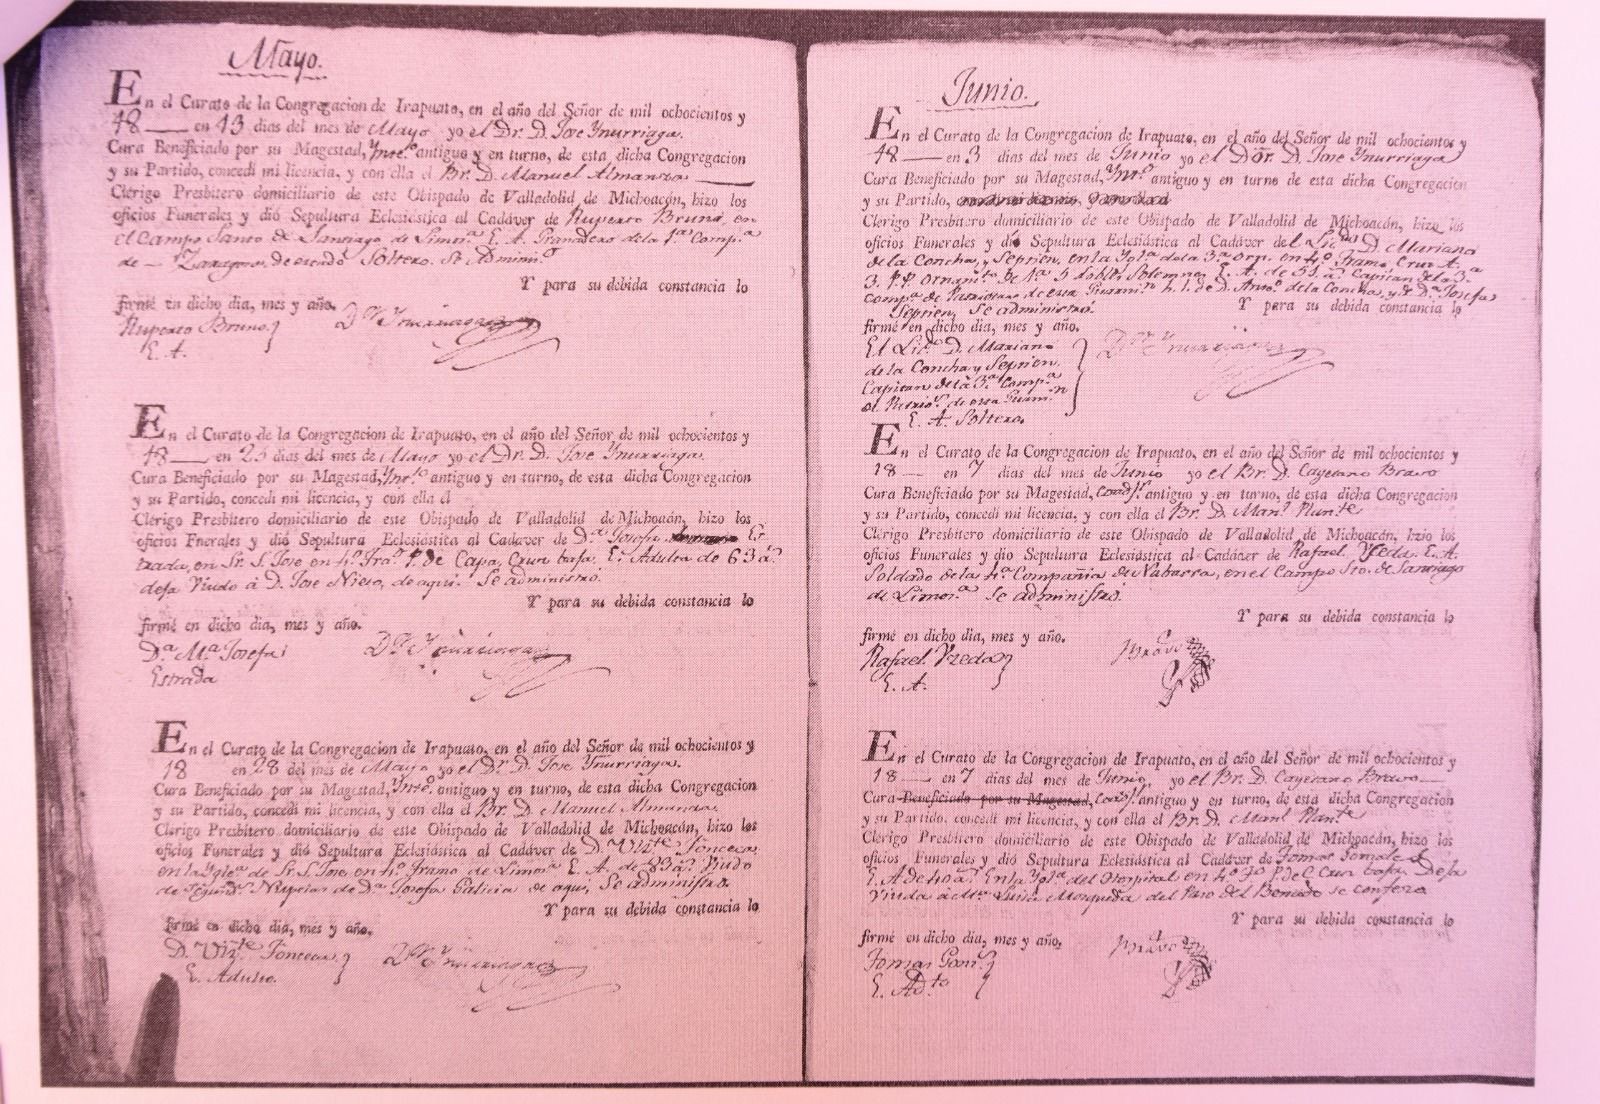 Mayo.
En el Curato de la Congregacion de Irapuato, en el año del Señor de mil ochocientos y
18 — en 13 dias del mes de Mayo yo el Dr. D. Jose Ynurriaga.
Cura Beneficiado por su Magestad, Ynt.º antiguo y en turno, de esta dicha Congregacion
y su Partido, concedi mi licencia, y con ella el Br. D. Manuel Almanza —
Clerigo Presbitero domiciliario de este Obispado de Valladolid de Michoacán, hizo los
oficios Funerales y dió Sepultura Eclesiástica al Cadáver de Ruperto Bruno, en
el Campo Santo de Santiago de Limos.ª E. A. Granadero de la 1.ª Comp.ª
de — Zaragoza, de estado Soltero. Se Adminis.º
Y para su debida constancia lo
firmé en dicho dia, mes y año.
Ruperto Bruno.
E. A.
D.r Ynurriaga
En el Curato de la Congregacion de Irapuato, en el año del Señor de mil ochocientos y
18 — en 25 dias del mes de Mayo yo el Dr. D. Jose Ynurriaga.
Cura Beneficiado por su Magestad, Ynt.º antiguo y en turno, de esta dicha Congregacion
y su Partido, concedi mi licencia, y con ella el
Clerigo Presbitero domiciliario de este Obispado de Valladolid de Michoacán, hizo los
oficios Fnerales y dió Sepultura Eclesiástica al Cadaver de D.ª Josefa Es
trada, en Sr. S. Jose en 4.º Tra.º P. de Capa, Cruz baja, E. Adulta de 63 a.ˢ
deja Viudo á D. Jose Nieto, de aqui. Se administró.
Y para su debida constancia lo
firmé en dicho dia, mes y año.
D.ª M.ª Josefa
Estrada
D.r Ynurriaga
En el Curato de la Congregacion de Irapuato, en el año del Señor de mil ochocientos y
18 en 28 del mes de Mayo yo el Dr. D. Jose Ynurriaga.
Cura Beneficiado por su Magestad, Ynt.º antiguo y en turno, de esta dicha Congregacion
y su Partido, concedi mi licencia, y con ella el Br. D. Manuel Almanza.
Clerigo Presbitero domiciliario de este Obispado de Valladolid de Michoacán, hizo los
oficios Funerales y dió Sepultura Eclesiástica al Cadaver de D. Viz.te Fonceca
en la Ygl.ª de Sr. S. Jose, en 4.º tramo de Limos.ª E. A. de 83 a.ˢ Viudo
de segund.ˢ Nupcias de D.ª Josefa Galicia de aqui, Se administró.
Y para su debida constancia lo
firmé en dicho dia, mes y año.
D. Viz.te Fonceca
E. Adulto.
D.r Ynurriaga
Junio.
En el Curato de la Congregacion de Irapuato, en el año del Señor de mil ochocientos y
18 — en 3 dias del mes de Junio yo el Dor. D. Jose Ynurriaga
Cura Beneficiado por su Magestad, Ynt.º antiguo y en turno de esta dicha Congregacion
y su Partido,
Clerigo Presbitero domiciliario de este Obispado de Valladolid de Michoacán, hizo los
oficios Funerales y dió Sepultura Eclesiástica al Cadáver del Lic.do D. Mariano
de la Concha, y Septien, en la Ygl.ª de la 3.ª Orn. en 4.º tramo, Cruz A.
3. P.P. Ornam.to de N.ª 5 dobles Solemnes, E. A. de 51 a. Capitan de la 3.ª
comp.ª de Patriotas de esta Guarn.n h. l. de D. Ant.º de la Concha, y de D.ª Josefa
Septien, Se administró.
Y para su debida constancia lo
firmé en dicho dia, mes y año.
El Lic.do D. Mariano
de la Concha y Septien.
Capitan de la 3.ª Comp.ª
de Patriot.ˢ de esta Guarn.n
E. A. Soltero.
D.r Ynurriaga
En el Curato de la Congregacion de Irapuato, en el año del Señor de mil ochocientos y
18 — en 7 dias del mes de Junio yo el Br. D. Cayetano Bravo
Cura Beneficiado por su Magestad, Coad.r antiguo y en turno, de esta dicha Congregacion
y su Partido, concedi mi licencia, y con ella el Br. D. Man.l Plante
Clerigo Presbitero domiciliario de este Obispado de Valladolid de Michoacán, hizo los
oficios Funerales y dio Sepultura Eclesiástica al Cadáver de Rafael Vzeda, E. A.
Soldado de la 4.ª Compañia de Nabarra, en el Campo Sto. de Santiago
de Limos.ª Se administró.
Y para su debida constancia lo
firmé en dicho dia, mes y año.
Rafael Vzeda
E. A.
Bravo
En el Curato de la Congregacion de Irapuato, en el año del Señor de mil ochocientos y
18 — en 7 dias del mes de Junio yo el Br. D. Cayetano Bravo —
Cura Beneficiado por su Magestad, Coad.r antiguo y en turno, de esta dicha Congregacion
y su Partido, concedi mi licencia, y con ella el Br. D. Man.l Plante
Clerigo Presbitero domiciliario de este Obispado de Valladolid de Michoacán, hizo los
oficios Funerales y dió Sepultura Eclesiástica al Cadaver de Tomas Gonzales
E. A. de 40 a.ˢ En la Ygl.ª del Hospital en 4.º P. de C. Cruz baja. Deja
Viuda á M.ª Luisa Mosqueda del Paso del Benado se confeso
Y para su debida constancia lo
firmé en dicho dia, mes y año.
Tomas Gonz.ˢ
E. Ad.to
Bravo